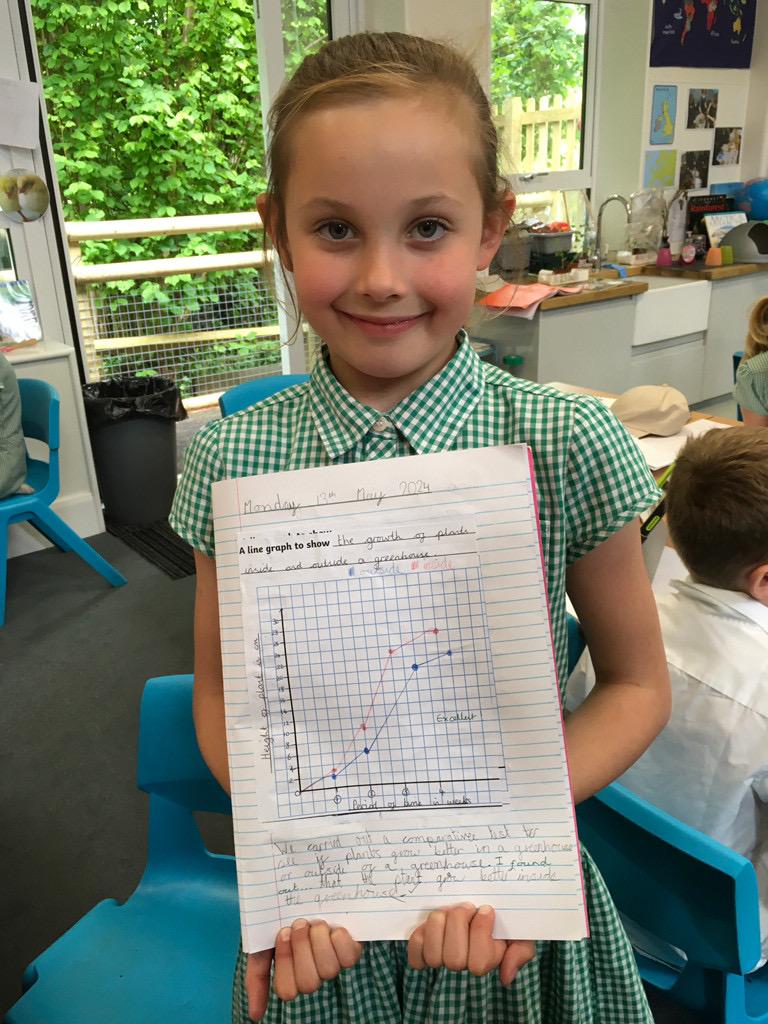 Monday 13th May 2024
A line graph to show the growth of plants
inside and outside a greenhouse.
outside inside
Height of plant in cm
Excellent
0 1 2 3 4
Period of time in weeks
We carried out a comparative test to
if plants grow better in a greenhouse
or outside of a greenhouse. I found
out... that the plant grew better inside
the greenhouse.
Rainforest